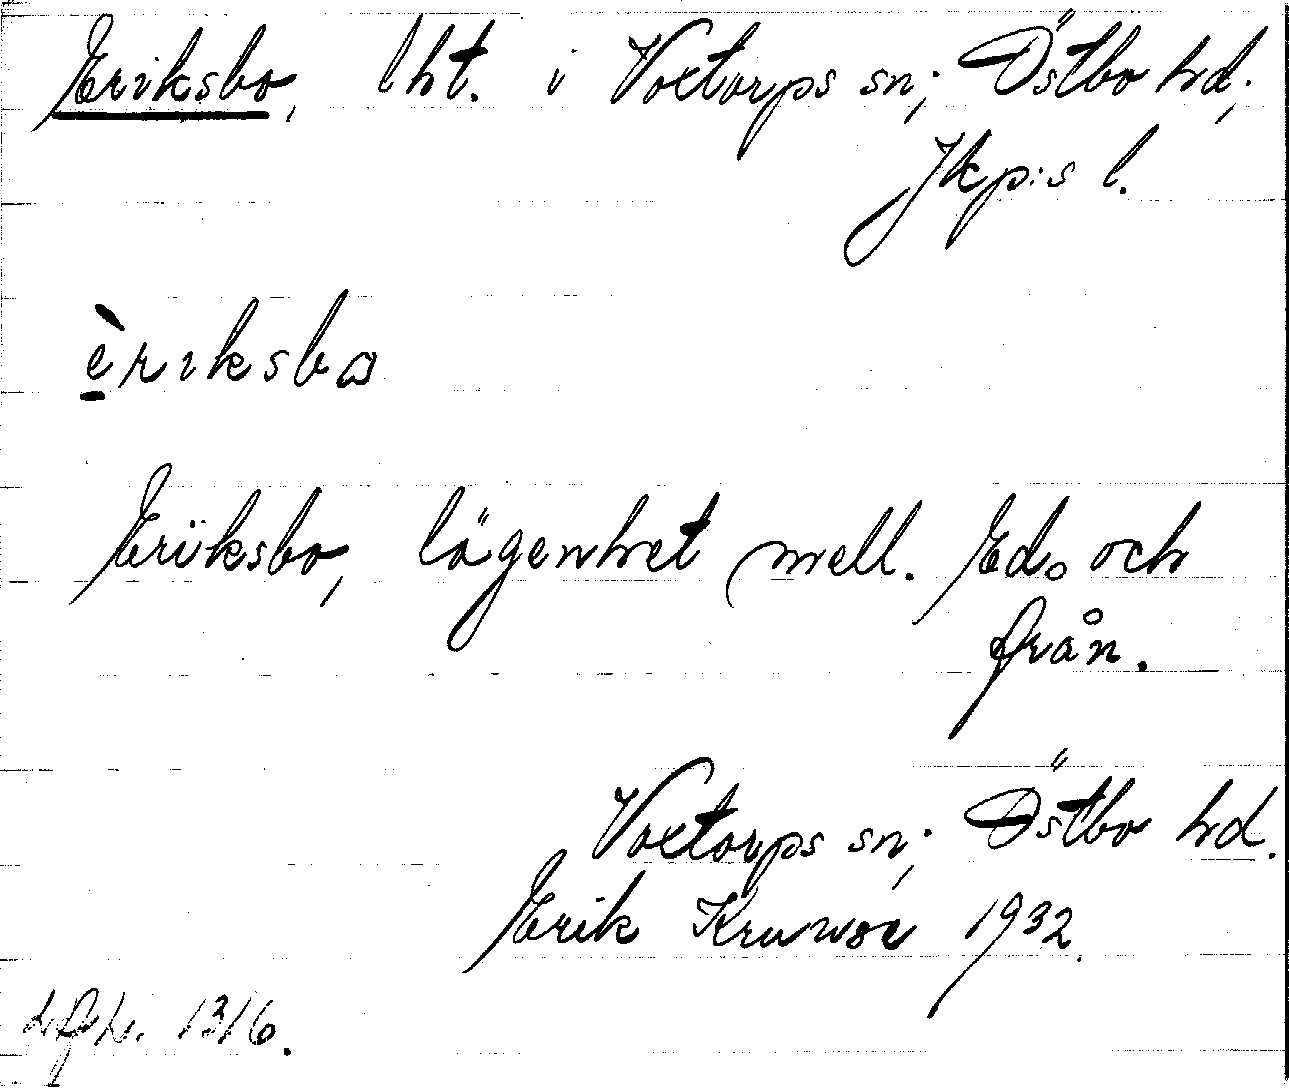 Eriksbo, lht. i Voxtorps sn; Östbo hd;
Jkp:s l.
èriksbω
Eriksbo, lägenhet mell. Ed. och
från.
Voxtorps sn; Östbo hd.
Erik 1932.
1316.